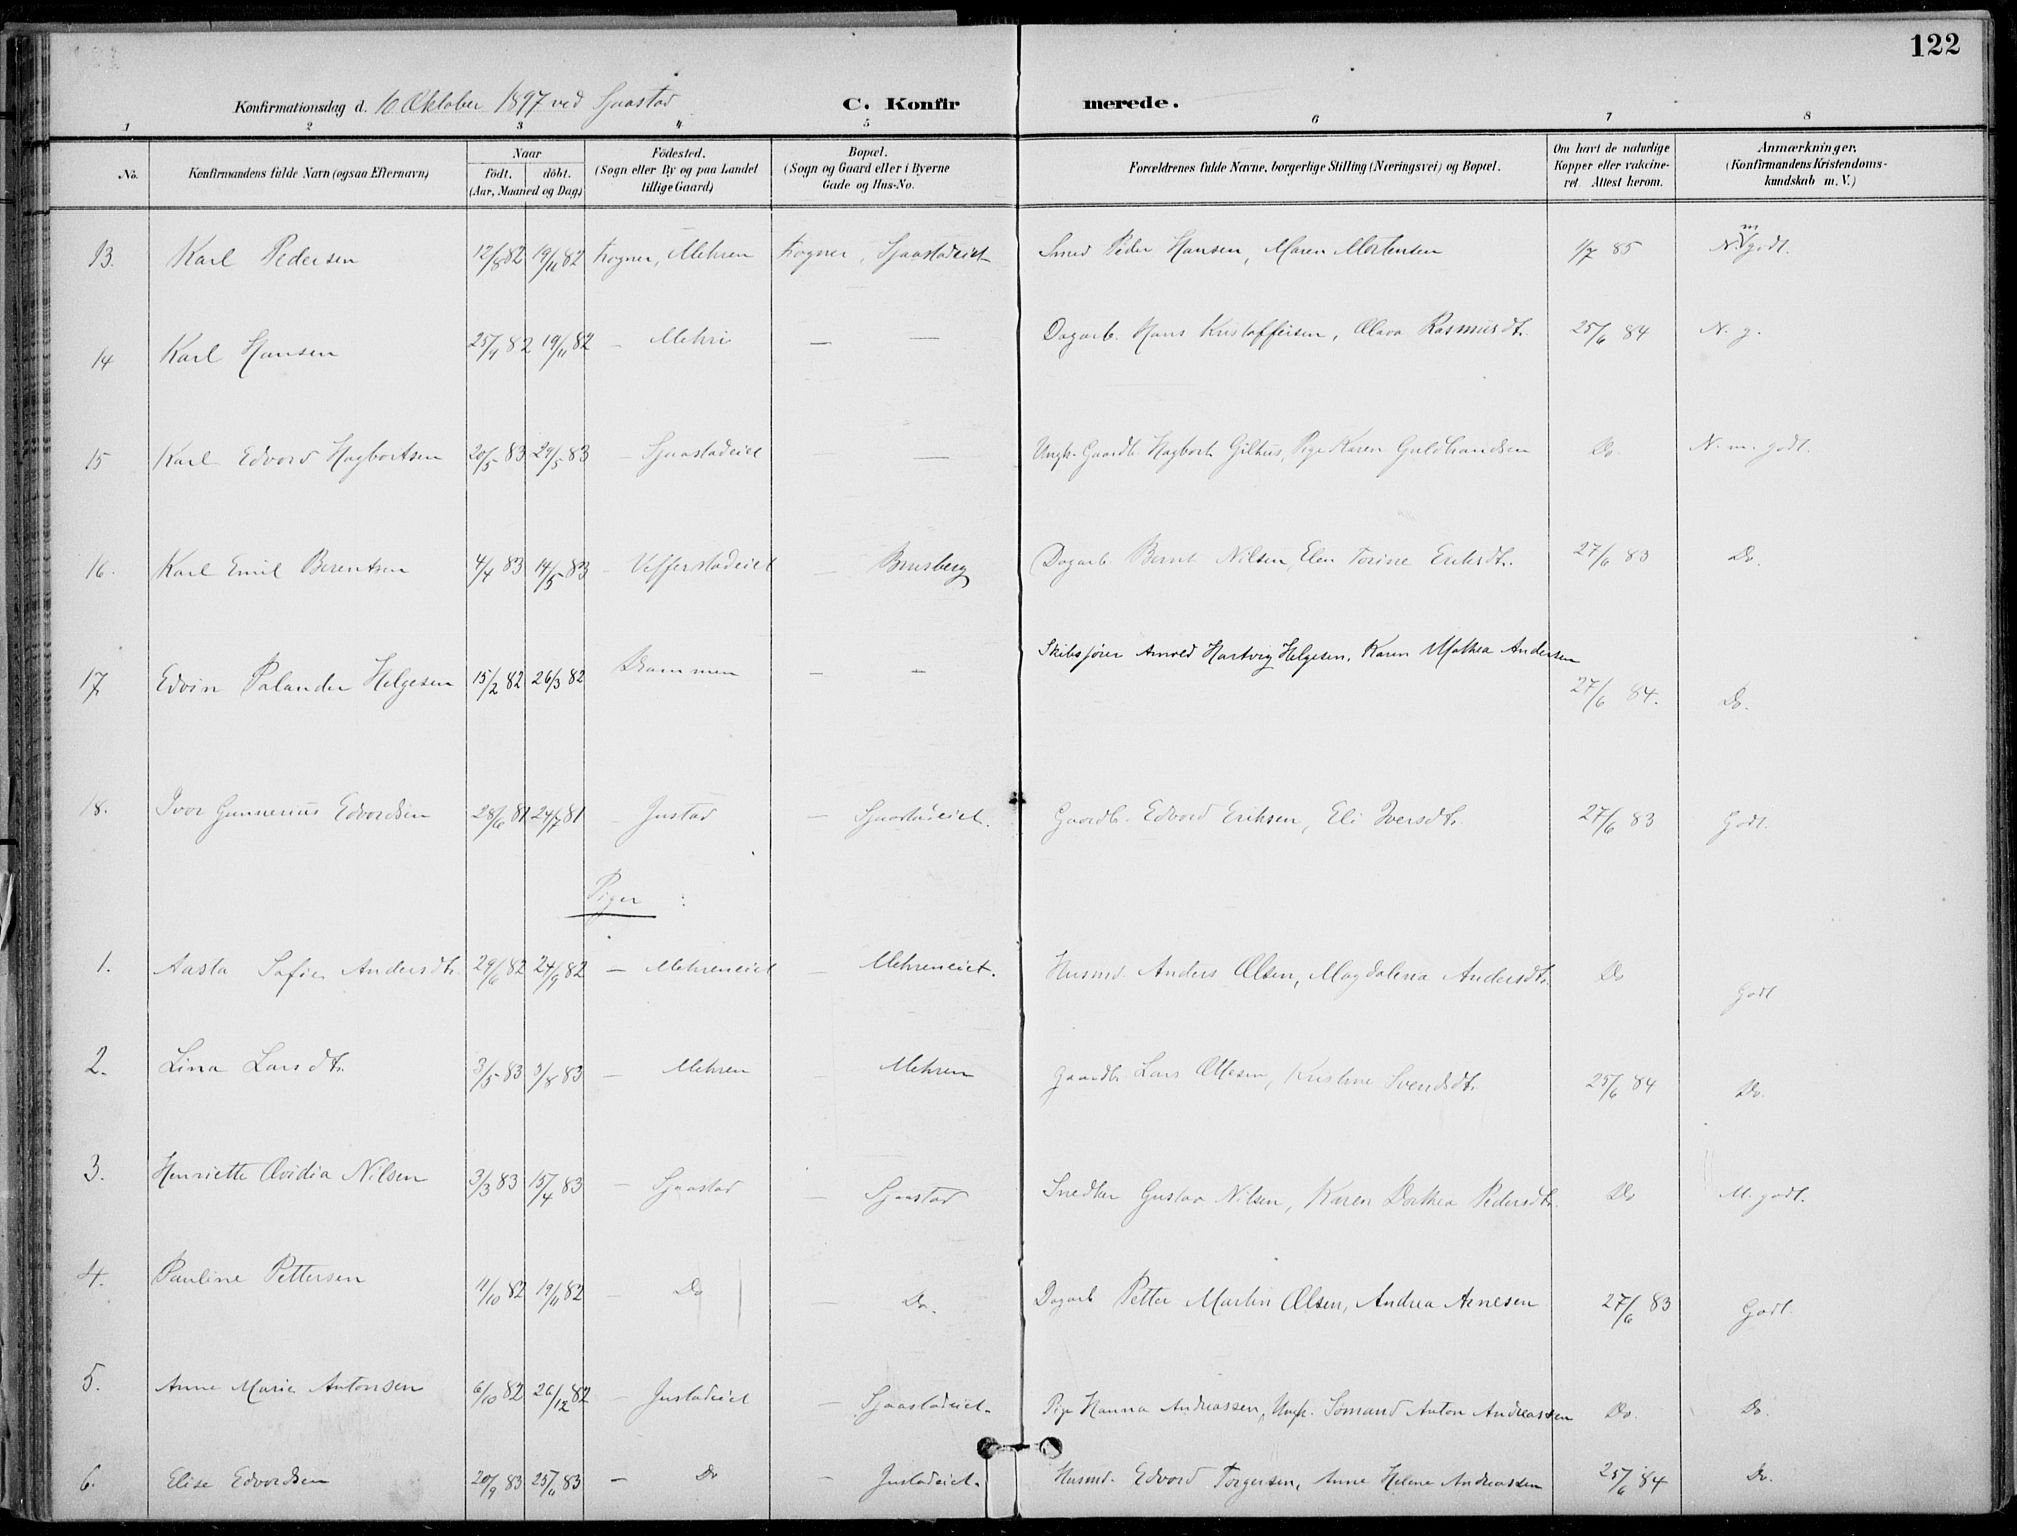 122
Konfirmationsdag d. 10 Oktober 1897 ved Sjaastad C. Konfirmerede.
1 2 3 4 5 6 7 8
No. Konfirmandens fulde Navn (ogsaa Efternavn) Naar födt. döbt. (Aar, Maaned og Dag) Födested. (Sogn eller By og paa Landet tillige Gaard) Bopæl. (Sogn og Gaard eller i Byerne Gade og Hus-No. Forældrenes fulde Navne, borgerlige Stilling (Næringsvei) og Bopæl. Om havt de naturlige Kopper eller vakcineret. Attest herom. Anmærkninger. (Konfirmandens Kristendomskundskab m. V.)
13. Karl Pedersen 12/8 82 19/11 82 Frogner, Mehren Frogner, Sjaastadeiet Smed Peder Hansen, Maren Mortensen 1/7 85 N. m godt.
14 Karl Hansen 25/9 82 19/11 82 – Mehri — — Dagarb. Hans Kristoffersen, Olava Rasmusdtr. 25/6 84 N. g.
15 Karl Edvard Hagbartsen 20/5 83 29/5 83 – Sjaastadeiet — — Ungk. Gaardb. Hagbart Gilhus, Pige Karen Guldbrandsen Do. N. m. godt.
16. Karl Emil Berentsen 4/4 83 14/5 83 – Vefferstadeiet — Brusberg Dagarb. Bernt Nilsen, Elen Torine Eriksdtr. 27/6 83 Do.
17 Edvin Palander Helgesen 15/2 82 26/3 82 Drammen – – Skibsfører Amold Hartvig Helgesen, Karen Mathea Andersen 27/6 84. Do.
18. Ivar Gunnerius Edvardsen 28/6 81 24/7 81 – Justad – Sjaastadeiet. Gaardb. Edvard Eriksen, Eli Iversdtr. 27/6 83 Godt.
Piger :
1. Aasta Sofie Andersdtr. 29/6 82 24/9 82 – Mehreneiet – Mehreneiet. Husmd. Anders Olsen, Magdalena Andersdtr. Do Godt
2. Lina Larsdtr. 3/5 83 5/8 83 – Mehren – Mehren Gaardb. Lars Ottesen, Kristine Svendsdtr. 25/6 84 Do.
3. Henriette Ovidia Nilsen 3/3 83 15/4 83 – Sjaastad – Sjaastad Snedker Gustav Nilsen, Karen Dorthea Pedersdtr. Do M. godt.
4. Pauline Pettersen 11/10 82 19/11 82 – Do – Do. Dagarb Petter Martin Olsen, Andrea Arnesen 27/6 83 Godt.
5. Anne Marie Antonsen 6/10 82 26/12 82 – Justadeiet – Sjaastadeiet. Pige Hanna Andreassen, Ungk. Sömand Anton Andreassen Do. Do.
6. Elise Edvardsen 20/9 83 25/11 83 – Do – Justadeiet. Husmd. Edvard Torgersen, Anne Helene Andreassen 25/6 84 Do.